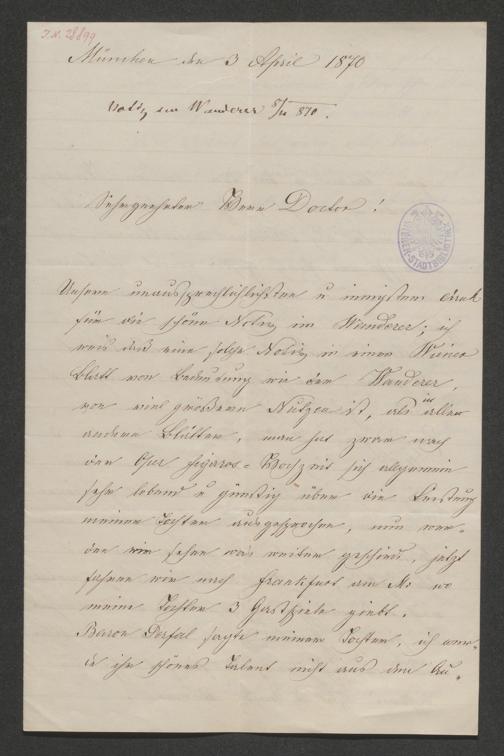 I.N. 28899
München den 3 April 1870
Notiz im Wanderer 5/4 870.
Sehrgeehrter Herr Doctor!
WIENER STADTBIBLIOTHEK
Unsern unaussprechlichsten u innigsten Dank
für die schöne Notiz im Wanderer; ich
weis daß eine solche Notiz in einen Wiener
Blatt von Bedeutung wie der Wanderer,
von viel größeren Nutzen ist, als in allen
andern Blättern, man hat zwar nach
der Oper Figaros-Hochzeit sich allgemein
sehr lobend u günstig über die Leistung
meiner Tochter ausgesprochen, nun wer-
den wir sehen was weiter geschieht, jetzt
fahren wir nach Frankfurt am M: wo
meine Tochter 3 Gastspiele giebt.
Baron Perfall sagte meiner Tochter, ich wer-
de ihr schönes Talent nicht aus den Au-